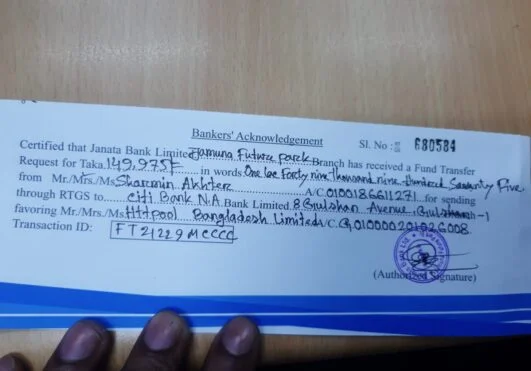 Bankers' Acknowledgement
Sl. No: 680584
Certified that Janata Bank Limited Jamuna Future park Branch has received a Fund Transfer
Request for Taka 149,975/= in words One lac Forty nine thousand nine hundred Seventy Five.
from Mr./Mrs./Ms Sharmin Akhter A/C. 0100186611271 for sending
through RTGS to citi Bank N.A. Bank Limited. 8 Gulshan Avenue, Gulshan-1
favoring Mr./Mrs./Ms. Httpool Bangladesh Limited A/C. G010000201026008
Transaction ID: FT21229MCCCC
(Authorized Signature)